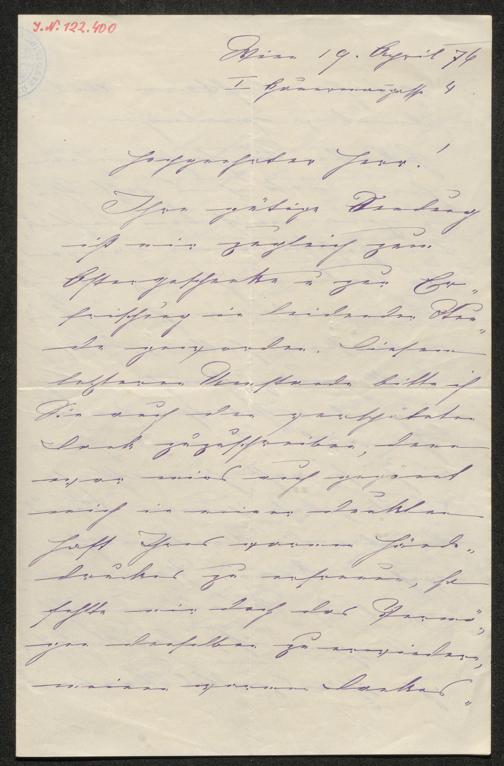 J.N. 122.400
Wien 19. April 76
I 4
Hochgeehrter Herr!
Ihre gütige Sendung
ist mir zugleich zum
Ostergeschenke u zur Er-
frischung in leidender Stun-
de geworden. Diesem
letzteren Umstande bitte ich
Sie auch den verspäteten
Dank zuzuschreiben, denn
war mirs auch gegönnt
mich in meiner dunklen
Haft Ihres warmen Hände-
druckes zu erfreuen, so
fehlte mir doch das Vermö-
gen denselben zu erwiedern,
meinen warmen Dankes-